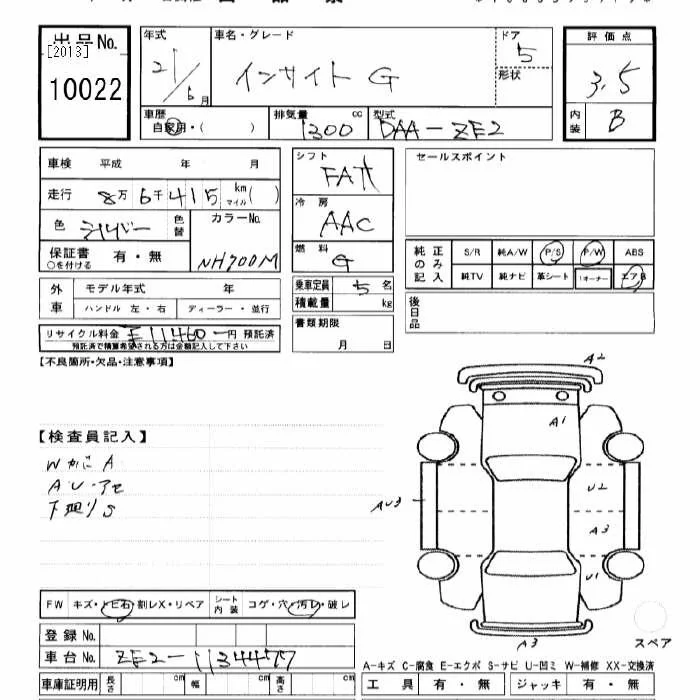 出品No.
[2013]
10022
年式
21/6月
車名・グレード
インサイト G
ドア
5
形状
評価点
3.5
内装
B
車歴
自家用・( )
排気量 cc
1300
型式
DAA-ZE2
車検 平成 年 月
走行 8万6千415 km マイル( )
色 シルバー 色替
カラーNo.
NH700M
保証書 有・無
○を付ける
シフト
FAT
冷房
AAC
燃料
G
乗車定員 5 名
積載量 kg
書類期限
月 日
セールスポイント
純正のみ記入
S/R 純A/W P/S P/W ABS
純TV 純ナビ 革シート 1オーナー エアB
後日品
外車
モデル年式 年
ハンドル 左・右 ディーラー・並行
リサイクル料金 ¥11460-円 預託済
預託済で積算希望される方は金額記入して下さい
【不良箇所・欠品・注意事項】
【検査員記入】
Wカ A
AU
下廻りS
A2
A1
U2
AU3
A3
U1
A3
スペア
FW キズ・トビ石・割レX・リペア
シート内装 コゲ・穴・汚レ・破レ
登録No.
車台No. ZE2-1134477
車庫証明用 長さ cm 幅 cm 高さ cm
A-キズ C-腐食 E-エクボ S-サビ U-凹ミ W-補修 XX-交換済
工具 有・無 ジャッキ 有・無